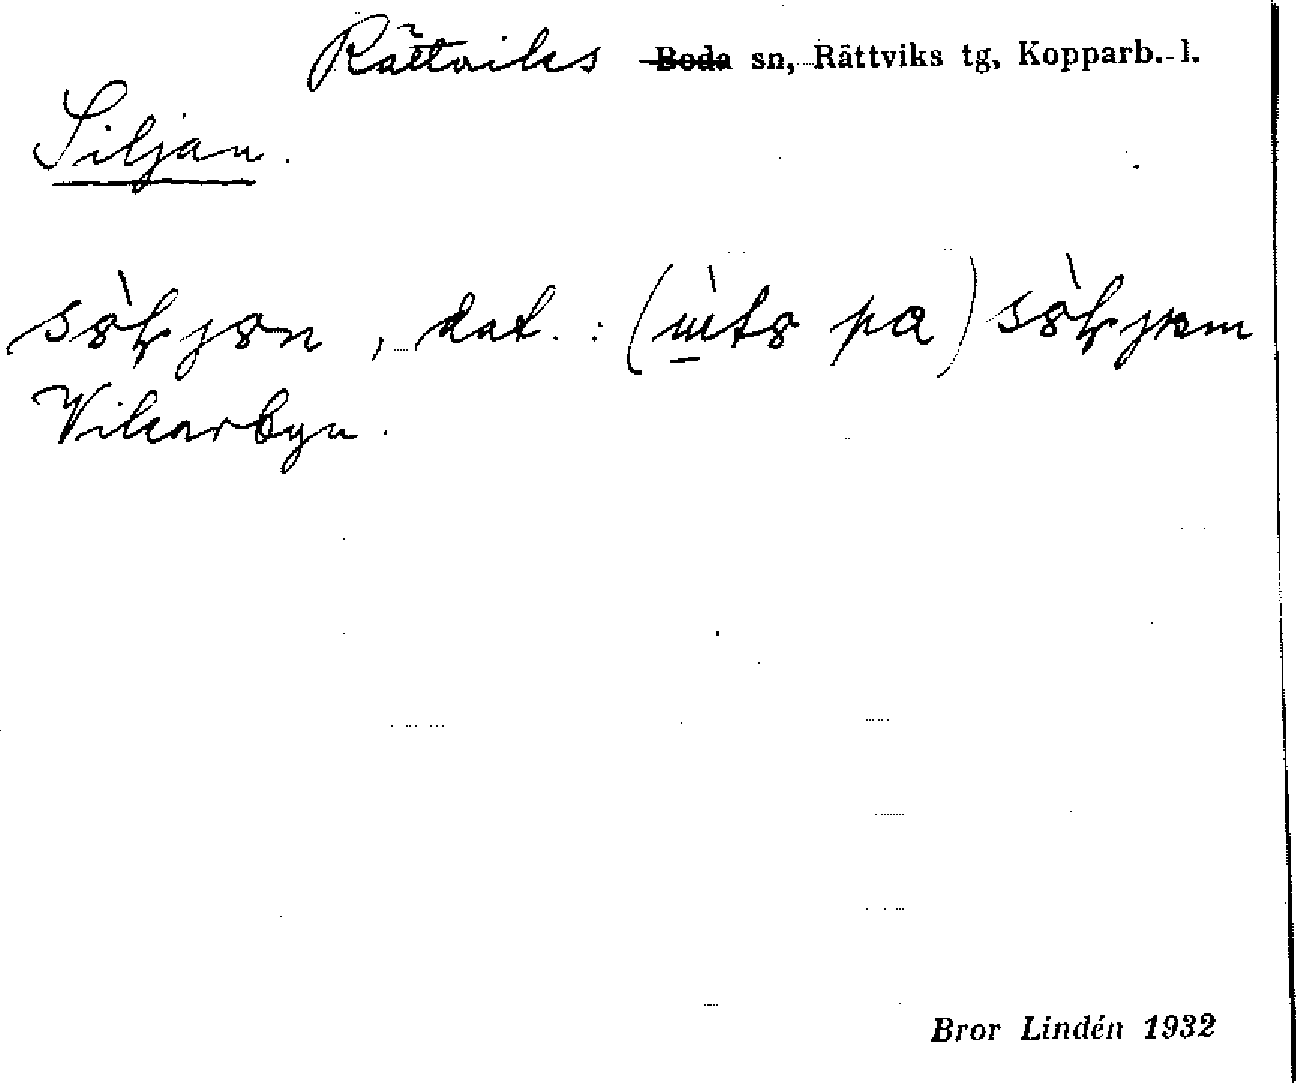 Rättviks Boda sn, Rättviks tg, Kopparb. l.
Siljan.
, dat. : ( pa)
Vikarbyn.
Bror Lindén 1932